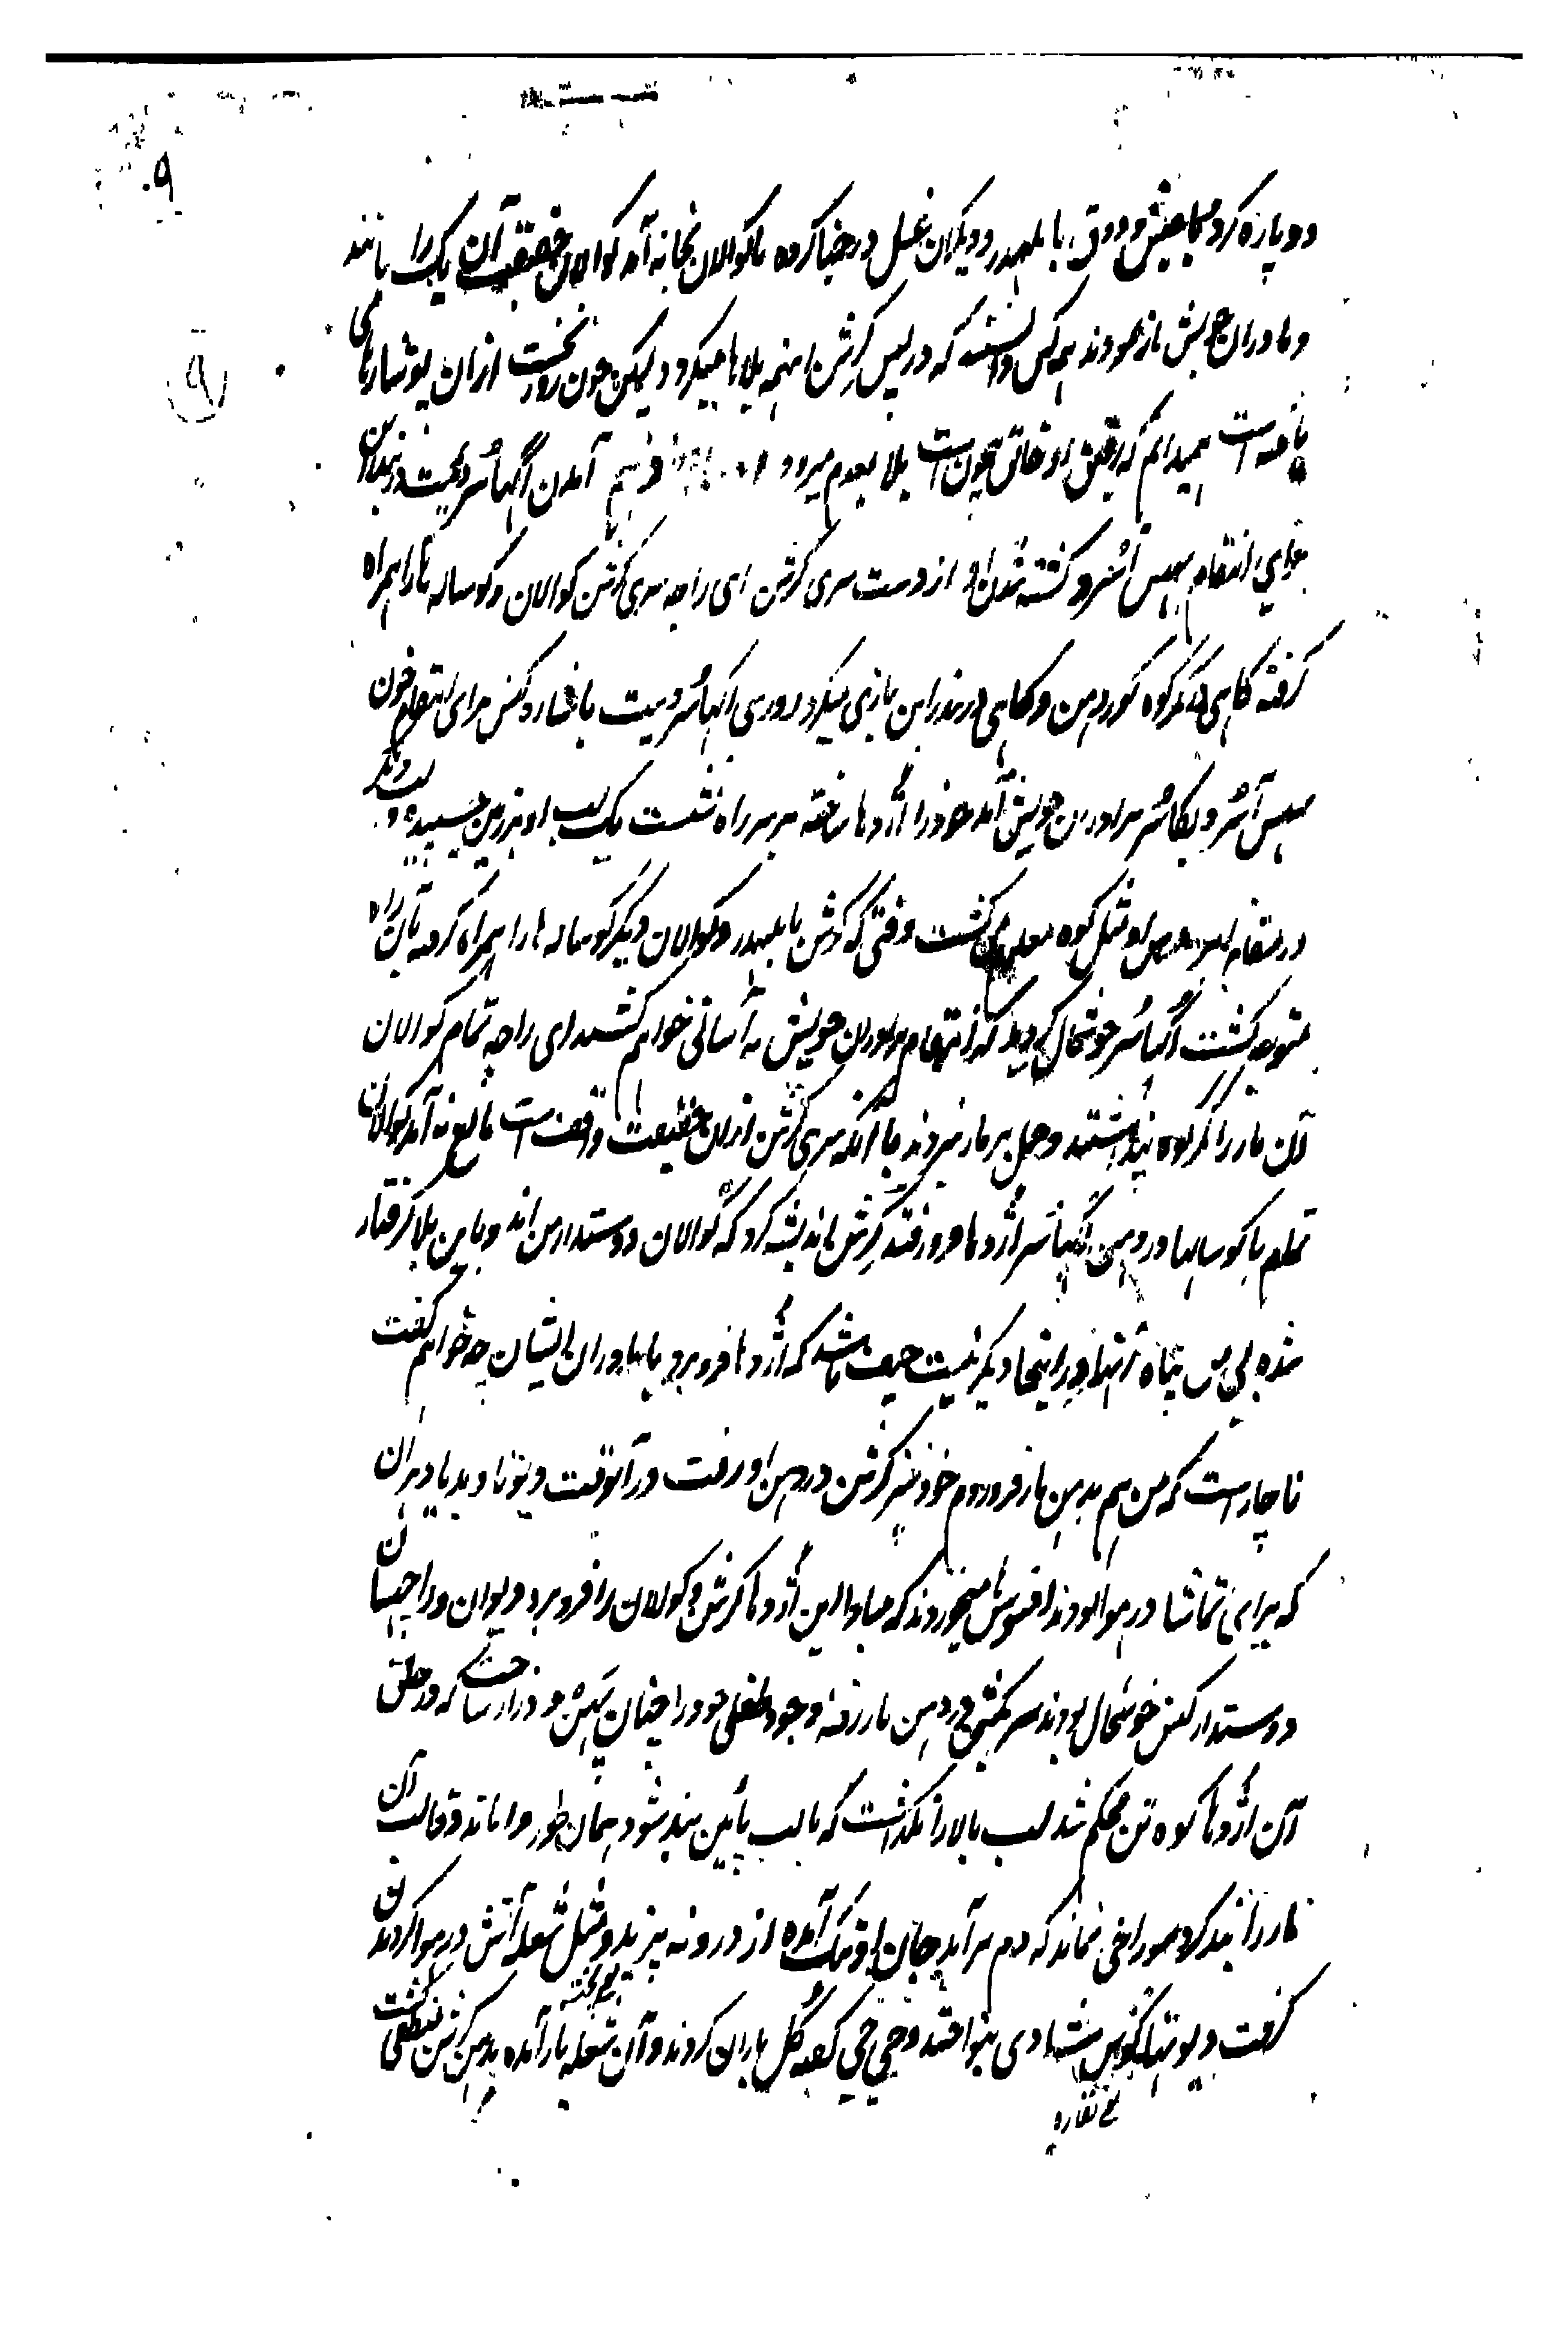 ۹
دوپاره کرد بعیش و ذوق با بلبهدر و دیگران غسل در جمنا کرده با گوالان بخانه آمد گوالان حقیقت آن یک را با نند
و مادران خویش باز نمودند همه کس دانستند که در پس کرشن اینهمه بلاها میکرد و لیکن چون روز نخست ازان پوشاربائی
۹
یافته است میدانم که رفیق او خالق بیچون است بلا بعدم میرود فرهم آمدن اگهاسر دیت در بندرابن
برای انتقام سر و کشته شدن او از دست سری کرشن ای راجه سری کرشن گوالان و گوساله ها را همراه
گرفته گاهی در کوه گوردهن و گاهی در بندرابن بازی میکرد روزی اگهاسر دیت باشاره کنس برای انتقام خون
آسر و بکاسر برادران خویش آمد خود را اژدها ساخته بر سر راه نشست یک لب او بزمین چسپیده و لب دیگر
در مثل کوه معلوم میگشت وقتی که کرشن با بلبهدر و گوالان دیگر گوساله ها را همراه کرده بآن راه
متوجه گشت اگهاسر خوشحال گردید که انتقام برادران خویش به آسانی خواهم کشید ای راجه تمام گوالان
آن مار را کوه پنداشتند و حمل بر مار نبردند با آنکه سری کرشن ازان حقیقت واقف است مانع نه آمد گوالان
تمام با گوسالها در دهن اگهاسر اژدها فرو رفتند کرشن اندیشه کرد که گوالان دوستدار من اند و باین بلا گرفتار
شده بی من پناه آنها در اینجا دیگر نیست حیف باشد که اژدها فرو برد با مادران ایشان چه خواهم گفت
ناچار است که من هم بدهن مار فرو روم خود نیز کرشن در دهن او رفت در آنوقت دیوتا و بدیادهران
که برای تماشا در هوا بودند افسوس میخوردند که مبادا این اژدها کرشن و گوالان را فرو برد و دیوان و راچهسان
دوستدار کنس خوشحال بودند سری کشن در دهن مار رفته وجود طفلی خود را چنان پهن و دراز ساخت که در حلق
آن اژدها کوه تن محکم شد لب بالا را نگذاشت که با لب پائین بند شود همان طور وا ماند و قالب آن
مار را بند کرد سوراخی نماند که دم برآید جان او تنگ آمده از درونه پرید و مثل شعله آتش در هوا گردیدن
گرفت دیوتها کوس شادی بنواختند و جی جی گفته گل باران کردند و آن شعله باز آمده بدهن کرشن منطفی گشت
نقاره